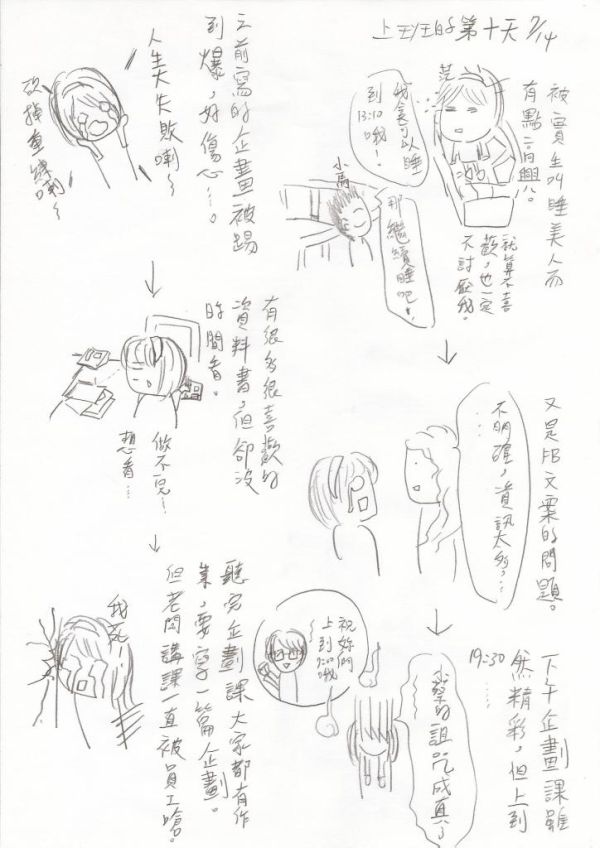 上班的第十天 7/14
被實生叫睡美人而
有點高興。
茫
我還可以睡
到
13:10
哦!
小馬
那繼續睡吧!
就算不喜
歡,也一定
不討厭我。
又是FB文案的問題。
不明確,資訊太多,……
下午企劃課雖
然精彩,但上到
19:30……
小蔡的詛咒成真了
祝妳們
上到
7:00哦
之前寫的企畫被踢
到爆,好傷心…。
人生大失敗喇~
砍掉重練喇~
有很多很喜歡的
資料書,但卻沒
時間看。
做不完…
想看…
聽完企劃課大家都有作
業,要寫一篇企劃。
但老闆講課一直被員工嗆。
我死